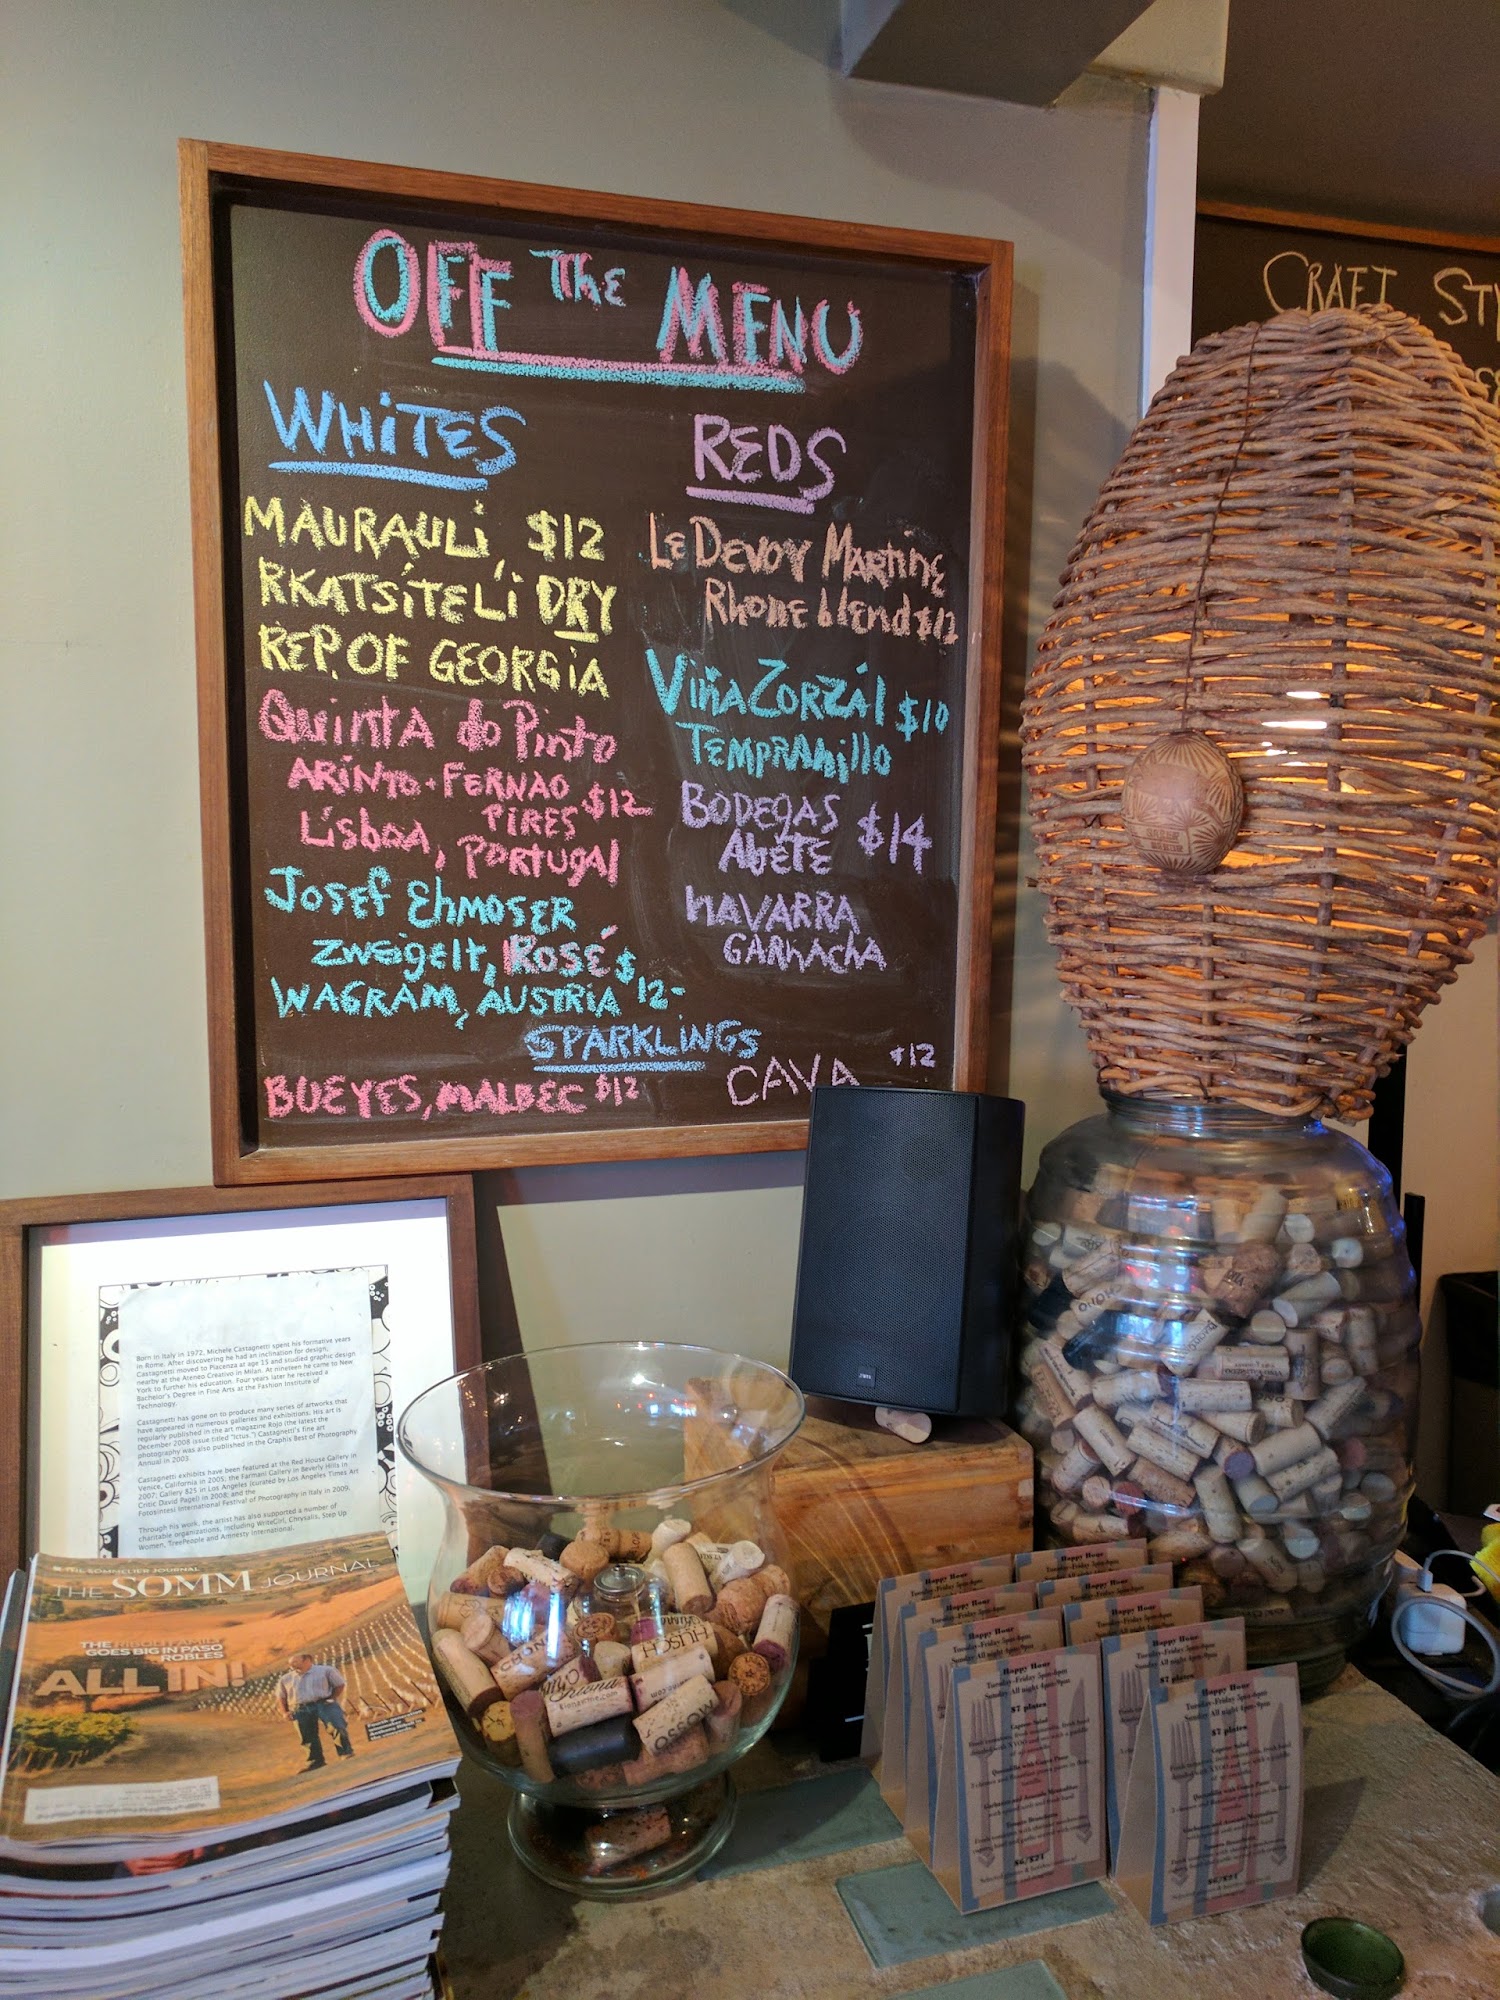 OFF THE MENU
WHITES
MAURAULI, $12
RKATSITELI DRY
REP. OF GEORGIA
QUINTA do Pinto
ARINTO + FERNAO
PIRES $12
Lisboa, PORTUGAL
Josef Ehmoser
ZWEIGELT, ROSÉ $12-
WAGRAM, AUSTRIA
REDS
Le Devoy Martine
Rhone blend $12
Viña Zorzál $10
TEMPRANillo
BODEGAS
AbETE $14
NAVARRA
GARNACHA
SPARKLINGS
BUEYES, MALBEC $12
CAVA $12
CRAFT STY
Born in Italy in 1972, Michele Castagnetti spent his formative years
in Rome. After discovering he had an inclination for design,
Castagnetti moved to Piacenza at age 15 and studied graphic design
nearby at the Ateneo Creativo in Milan. At nineteen he came to New
York to further his education. Four years later he received a
Bachelor's Degree in Fine Arts at the Fashion Institute of
Technology.
Castagnetti has gone on to produce many series of artworks that
have appeared in numerous galleries and exhibitions. His art is
regularly published in the art magazine Rojo (the latest the
December 2008 issue titled "Ictus.") Castagnetti's fine art
photography was also published in the Graphis Best of Photography
Annual in 2003.
Castagnetti exhibits have been featured at the Red House Gallery in
Venice, California in 2005; the Farmani Gallery in Beverly Hills in
2007; Gallery 825 in Los Angeles (curated by Los Angeles Times Art
Critic David Pagel) in 2008; and the
Fotosintesi International Festival of Photography in Italy in 2009.
Through his work, the artist has also supported a number of
charitable organizations, including WriteGirl, Chrysalis, Step Up
Women, TreePeople and Amnesty International.
THE SOMMELIER JOURNAL
THE SOMM JOURNAL
THE RIBOLI FAMILY
GOES BIG IN PASO
ROBLES
ALL IN!
HUSCH
Happy Hour
Tuesday-Friday 5pm-6pm
Sunday All night 4pm-9pm
$7 plates
Caprese Salad
$6/$21
Happy Hour
Tuesday-Friday 5pm-6pm
Sunday All night 4pm-9pm
$7 plates
Caprese Salad
$6/$21